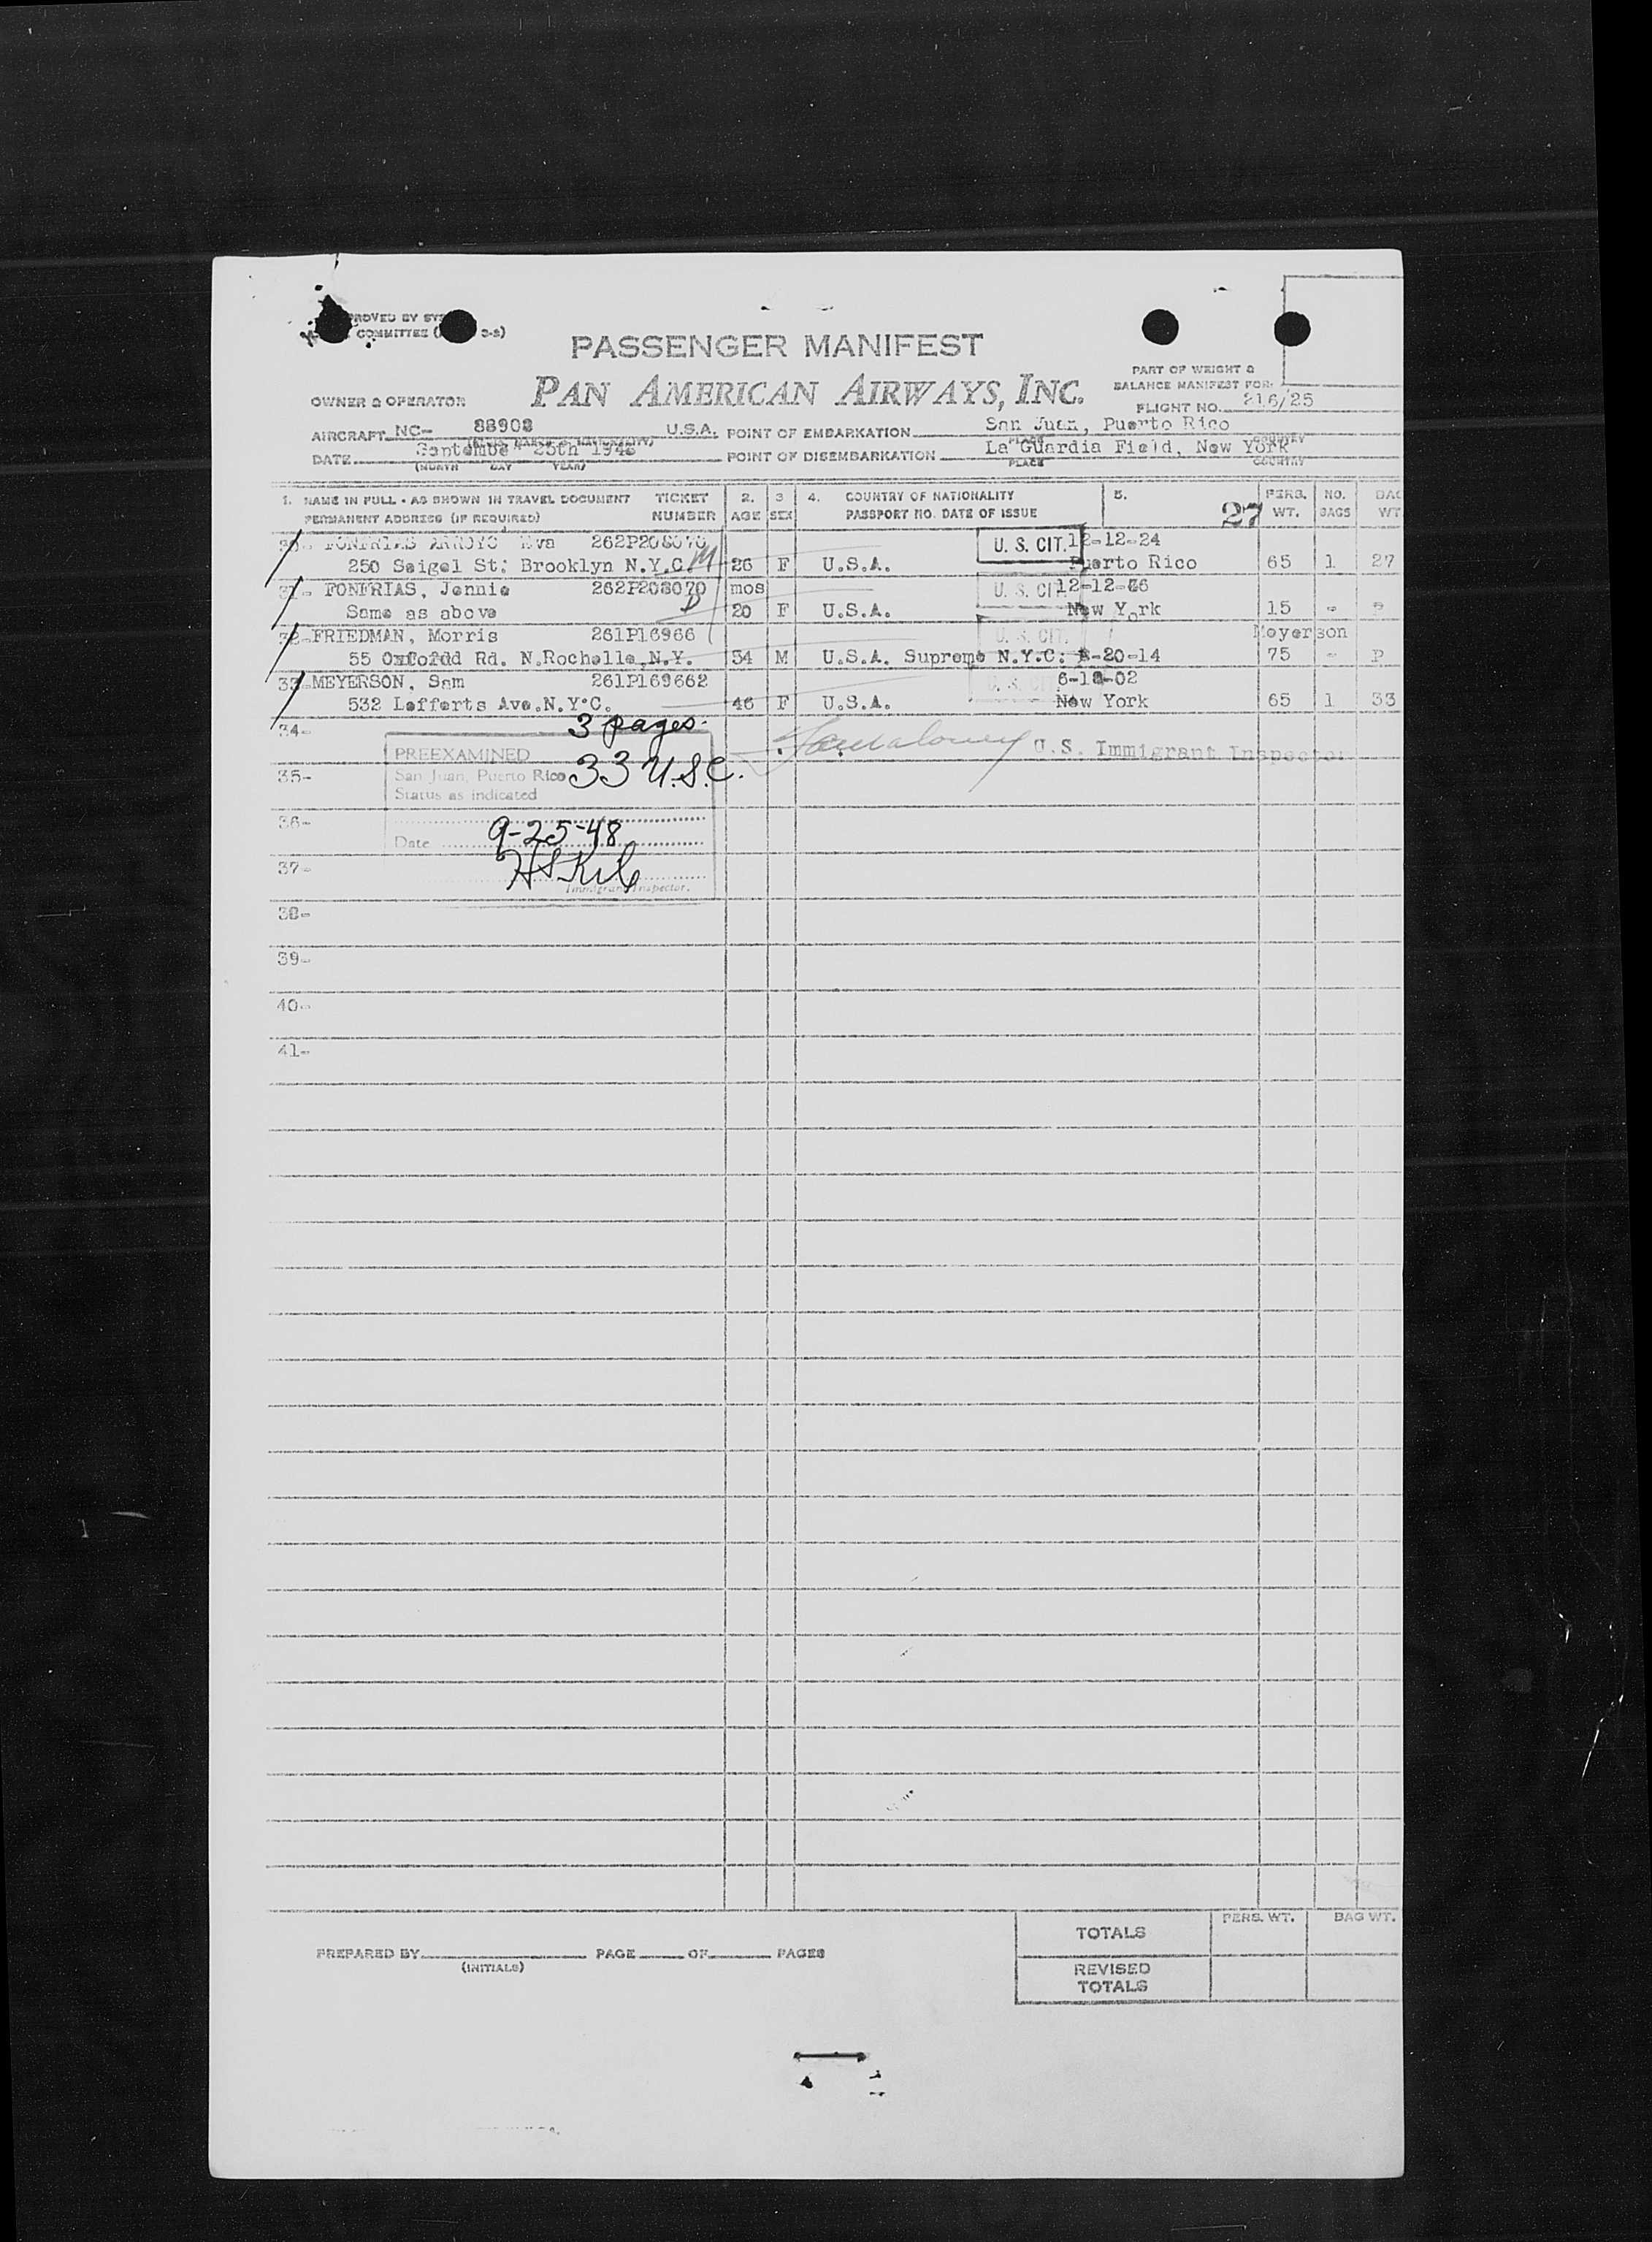 PROVED BY SYS
COMMITTEE ( 3-2)
PASSENGER MANIFEST
PART OF WEIGHT &
BALANCE MANIFEST FOR:
OWNER & OPERATOR PAN AMERICAN AIRWAYS, INC.
FLIGHT NO. 216/25
AIRCRAFT NC- 88903 U.S.A. POINT OF EMBARKATION San Juan, Puerto Rico
PLACE COUNTRY
DATE September 25th 1948 POINT OF DISEMBARKATION La Guardia Field, New York
(MONTH DAY YEAR) PLACE COUNTRY
1. NAME IN FULL - AS SHOWN IN TRAVEL DOCUMENT TICKET 2. 3 4. COUNTRY OF NATIONALITY 5. PERS. NO. BAG
PERMANENT ADDRESS (IF REQUIRED) NUMBER AGE SEX PASSPORT NO. DATE OF ISSUE 27 WT. BAGS WT
30- FONFRIAS ARROYO Eva 262P208070 U. S. CIT. 12-12-24
250 Seigel St; Brooklyn N.Y.C M 26 F U.S.A. Puerto Rico 65 1 27
31- FONFRIAS, Jennie 262P208070 mos U. S. CIT. 12-12-46
Same as above D 20 F U.S.A. New York 15 -
32-FRIEDMAN, Morris 261P16966 U. S. CIT. Meyerson
55 Oxfofdd Rd. N.Rochelle,N.Y. 34 M U.S.A. Supreme N.Y.C: -20-14 75 - P
33-MEYERSON, Sam 261P169662 U. S. CIT. 6-18-02
532 Lefferts Ave.N.Y.C. 46 F U.S.A. New York 65 1 33
34- 3 pages.
PREEXAMINED U.S. Immigrant Inspector
35- San Juan, Puerto Rico 33 U.S.C.
Status as indicated
36-
Date 9-25-48
37-
Immigrant Inspector.
38-
39-
40-
41-
TOTALS PERS. WT. BAG WT.
PREPARED BY PAGE OF PAGES
(INITIALS)
REVISED
TOTALS